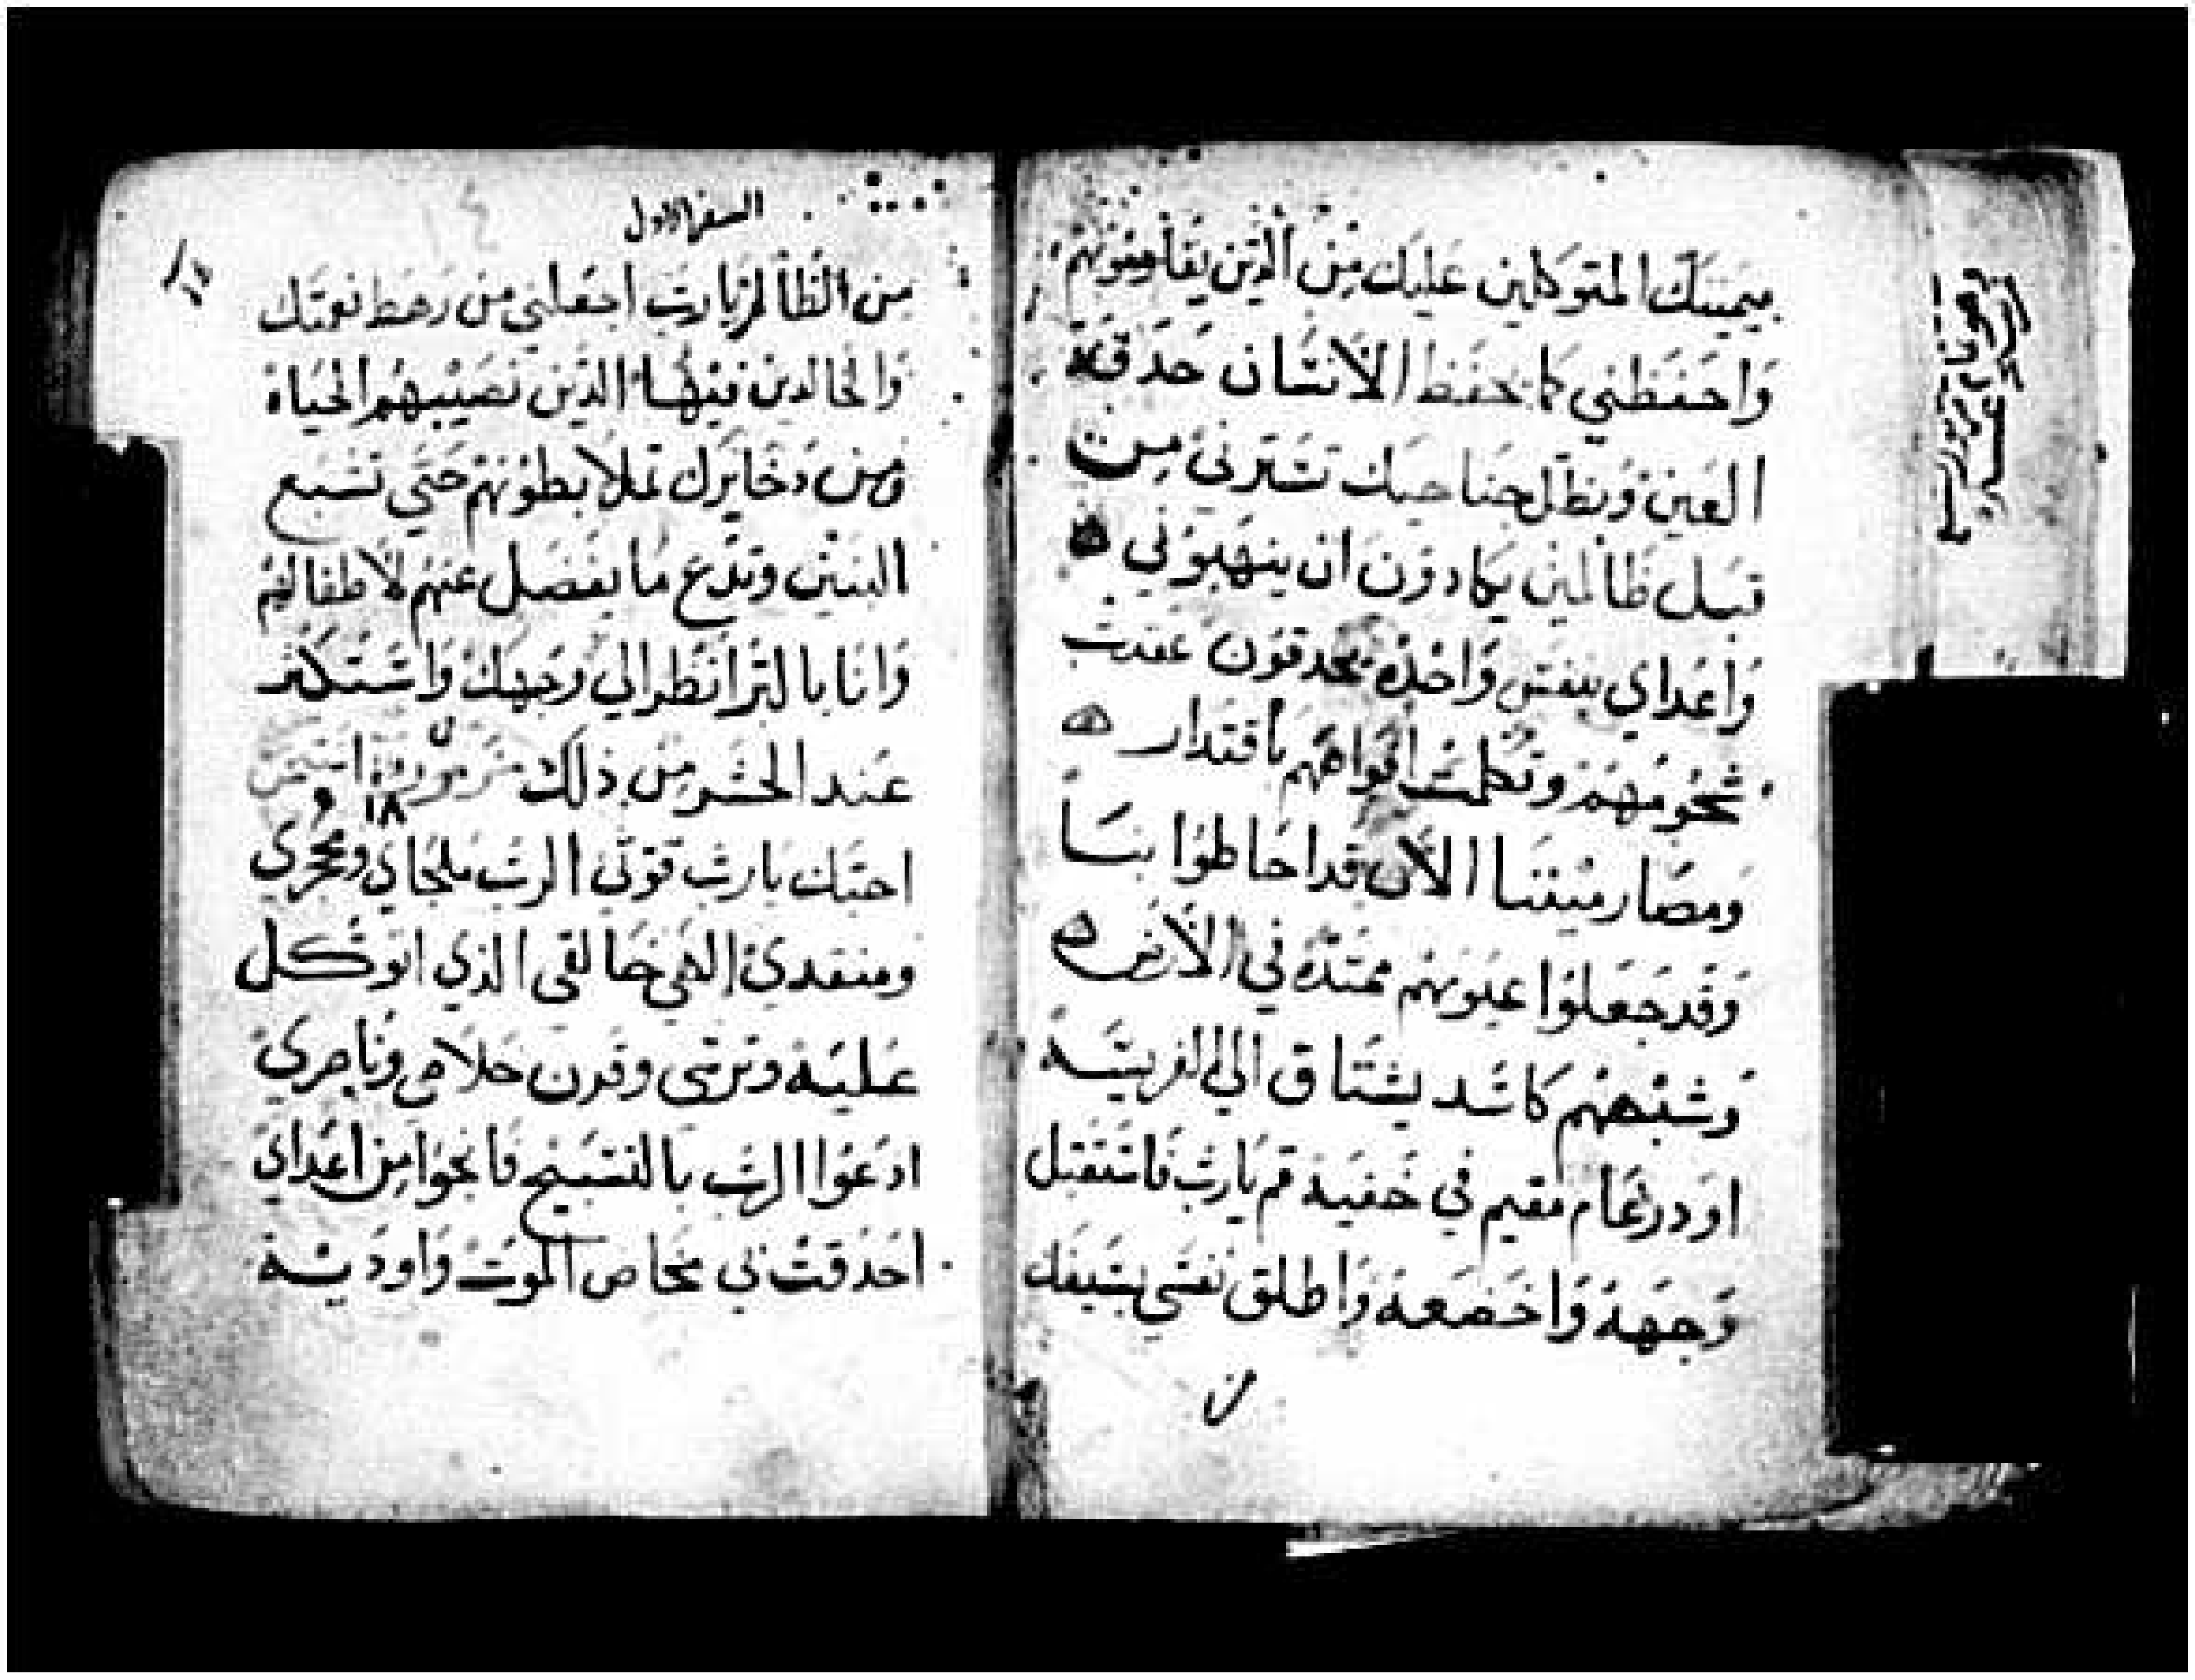 بيمينك المتوكلين عليك من الذين يقاومونهم
واحفظني كما حفظ الانسان حدقة
العين وبظل جناحيك تسترني من
قبل ظالمين يكادون ان ينهبوني
واعداي بنفس واحده يحدقون عقدت
شحومهم وتكلمت افواههم باقتدار
ومصارميننا الان قد احاطوا بنا
وقد جعلوا عيونهم ممتده في الارض
وشبههم كاسد يشتاق الي الفريسة
او درغام مقيم في خفية قم يارب فاستقبل
وجهة واخضعة واطلق نفسي بسيفك
من
السفر الاول
من الظالم يارب اجعلني من رهط نعمتك
والخالدين فيها الذين نصيبهم الحياة
ومن دخايرك تملا بطونهم حتي تشبع
البنين وتدع ما يفضل عنهم لاطفالهم
وانا بالبر انظر الي وجهك واستكثر
عند الحشر من ذلك مزمور
١٨
احبك يارب قوتي الرب ملجاي ومحرزي
ومنقدي الهي خالقي الذي اتوكل
علية وترسي وقرن خلاصي وناصري
ادعوا الرب بالتسبيح فانجوا من اعداي
احدقت بي مخاض الموت واودية